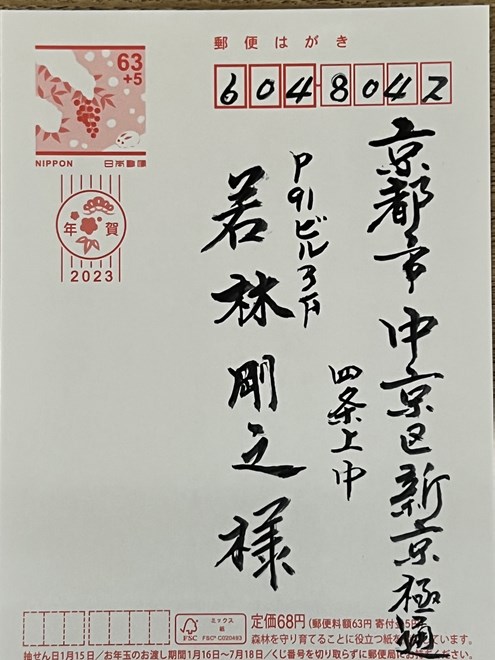 郵便はがき
63
+5
NIPPON 日本郵便
年賀
2023
6048042
京都市中京区新京極通
四条上中
P91ビル3F
若林剛之様
FSC
ミックス
紙
FSC® C020493
定価68円(郵便料額63円 寄付金5円)
森林を守り育てることに役立つ紙を使っています。
抽せん日1月15日/お年玉のお渡し期間1月16日〜7月18日/くじ番号を切り取らずに郵便局に